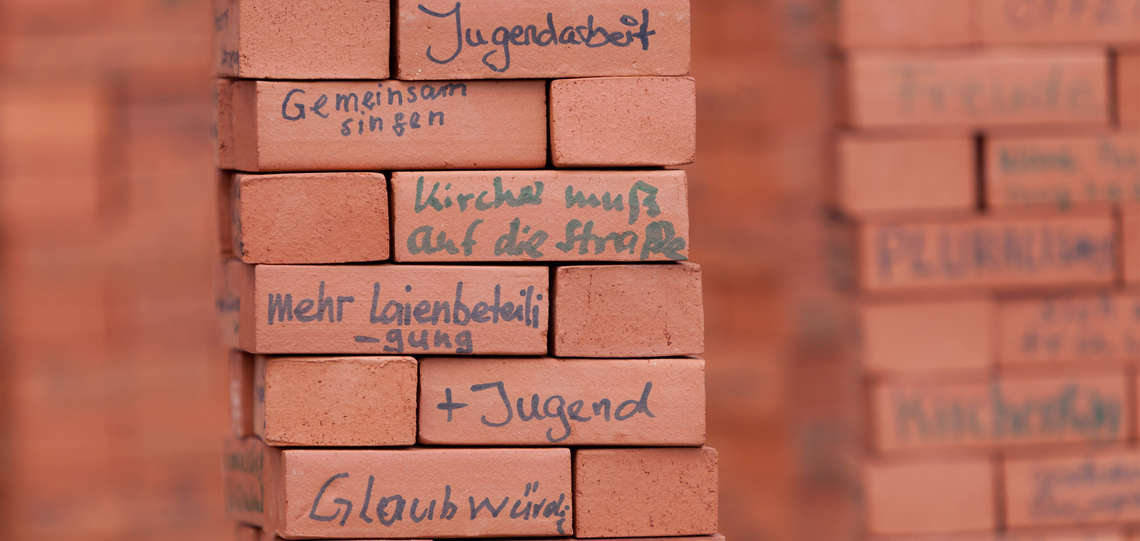 Jugendarbeit
Gemeinsam
singen
Kirche muß
auf die Straße
mehr Laienbeteili
-gung
+ Jugend
Glaubwürdi
Freude
PLURALISMUS